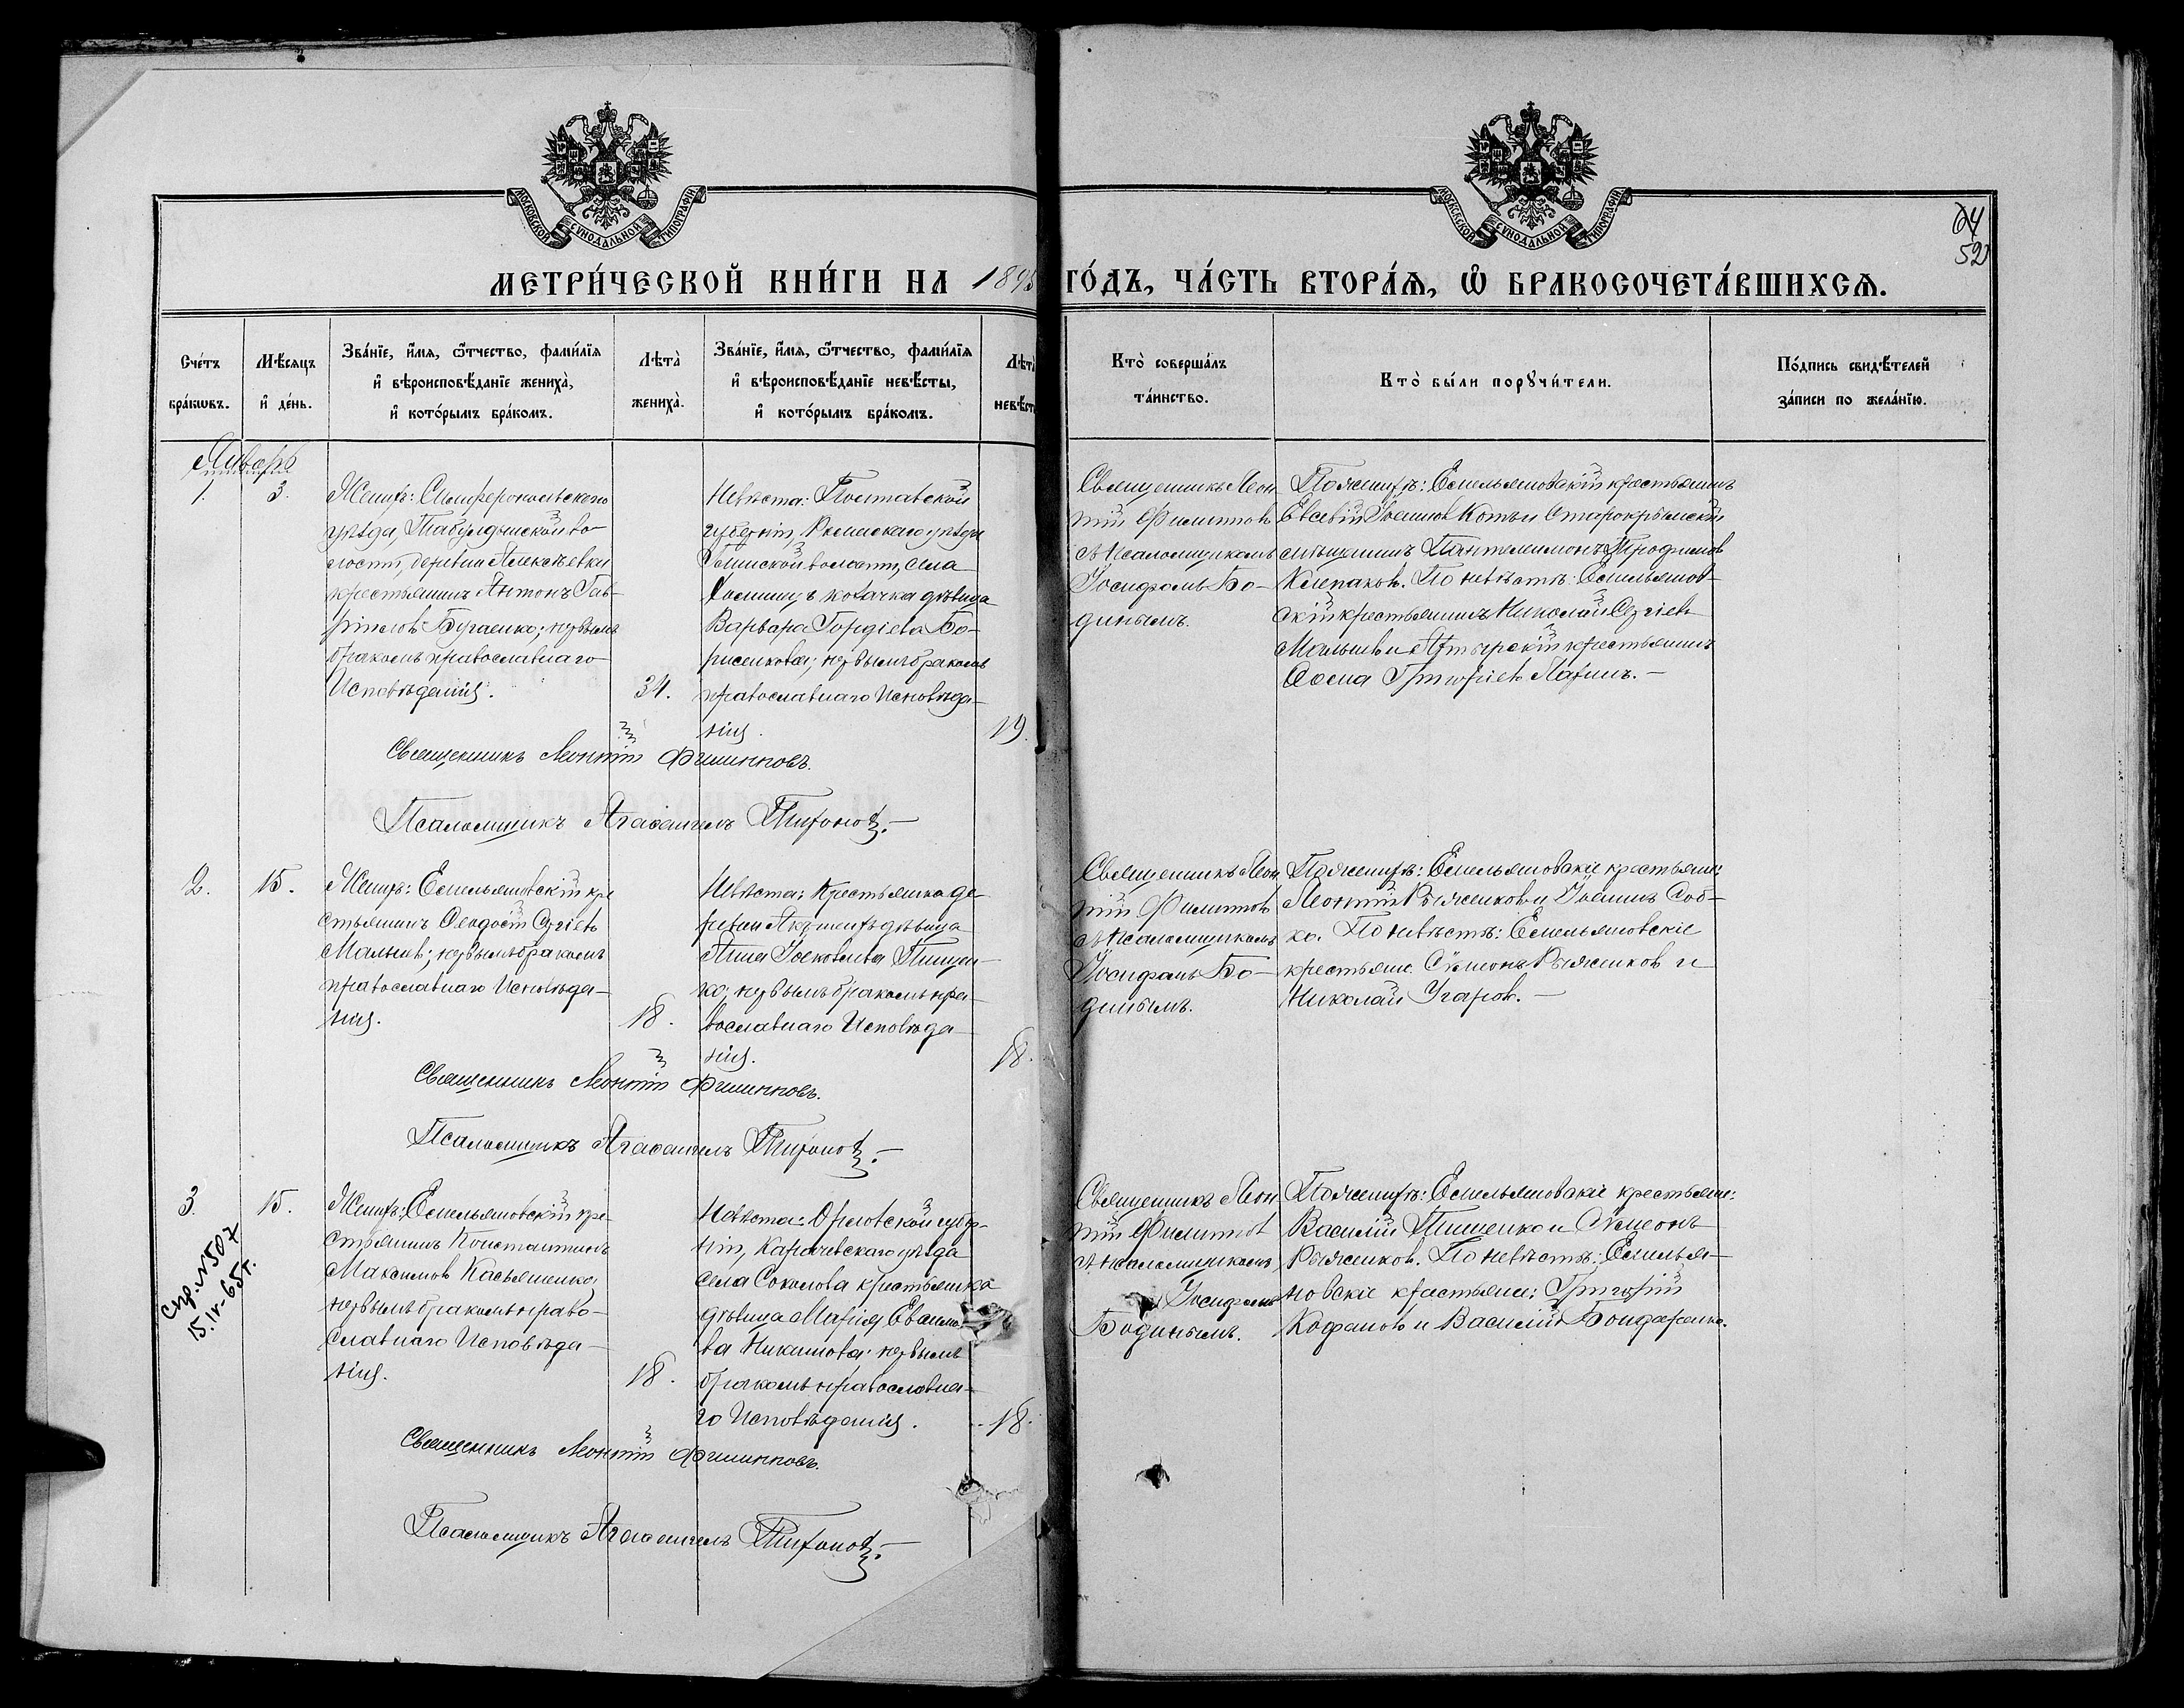 МОСКОВСКОЙ СУНОДАЛЬНОЙ ТИПОГРАФІИ
МОСКОВСКОЙ СУНОДАЛЬНОЙ ТИПОГРАФІИ
64
52
МЕТРИ́ЧЕСКОЙ КНИ́ГИ НА 1895 ГО́ДЪ, ЧА́СТЬ ВТОРА́Ѧ, Ѡ҆ БРАКОСОЧЕТА́ВШИХСѦ.
Сче́тъ
бра́кѡвъ.
Мѣ́сяцъ
и҆ де́нь.
Зва́нїе, и҆́мѧ, ѻ҆́тчество, фамі́лїѧ
и҆ вѣроисповѣ́данїе жениха̀,
и҆ кото́рымъ бра́комъ.
Лѣта̀
жениха̀.
Зва́нїе, и҆́мѧ, ѻ҆́тчество, фамі́лїѧ
и҆ вѣроисповѣ́данїе невѣ́сты,
и҆ кото́рымъ бра́комъ.
Лѣта̀
невѣ́ст
Кто̀ соверша́лъ
та́инство.
Кто̀ бы́ли порꙋчи́тели.
По́дпись свидѣ́телей
за́писи по жела́нїю.
Январь
1.
3.
Женихъ: Симферопольскаго
уѣзда, Табулдынской во-
лости, деревни Алексѣевки
крестьянинъ Антонъ Гав-
риловъ Бугаенко; первымъ
бракомъ православнаго
Исповѣданія.
34.
Невѣста: Полтавской
губерніи, Роменскаго уѣзда
волости, села
козачка дѣвица
Варвара Гордіева Бо-
рисенкова; первымъ бракомъ
православнаго Исповѣда-
нія.
19.
Священникъ Леон-
тій Филипповъ
съ Псаломщикомъ
Іосифомъ Бо-
динымъ.
По женихѣ: Емельяновскій крестьянинъ
Евсевій Іоанновъ Котъ и Старокрымскій
мѣщанинъ Пантелимонъ Трофимовъ
Клепаковъ. По невѣстѣ: Емельянов-
скій крестьянинъ Николай Сергіевъ
Малышевъ и крестьянинъ
Косма Григорьевъ Ларинъ.—
Священникъ Леонтій Филипповъ.
Псаломщикъ Агаѳангелъ Тихоновъ.—
2.
15.
Женихъ: Емельяновскій кре
стьянинъ Ѳеодосій Сергіевъ
Малышевъ; первымъ бракомъ
православнаго Исповѣда-
нія.
18.
Невѣста: Крестьянка де-
ревни дѣвица
Анна Іоаковлева Пищен-
ко; первымъ бракомъ пра-
вославнаго Исповѣда-
нія.
18.
Священникъ Леон
тій Филипповъ
съ Псаломщикомъ
Іосифомъ Бо-
динымъ.
По женихѣ: Емельяновскіе крестьяне:
Леонтій Ряженковъ и Іоаннъ Соб-
ко. По невѣстѣ: Емельяновскіе
крестьяне Сѵмеонъ Ряженковъ и
Николай Угаровъ.—
Священникъ Леонтій Филипповъ.
Псаломщикъ Агаѳангелъ Тихоновъ.—
3.
15.
Спр. №507
15.IV-65г.
Женихъ: Емельяновскій кре-
стьянинъ Константинъ
Максимовъ Касьяненко,
первымъ бракомъ право-
славнаго Исповѣда-
нія.
18.
Невѣста: Орловской губер-
ніи, Карачевскаго уѣзда
села Соколова крестьянка
дѣвица Марія
ва Никишова; первымъ
бракомъ православна-
го Исповѣданія.
18.
Священникъ Леон
тій Филипповъ
съ Псаломщикомъ
Іосифомъ
Бодинымъ.
По женихѣ: Емельяновскіе крестьяне:
Василій Пищенко и Сѵмеонъ
Ряженковъ. По невѣстѣ: Емелья-
новскіе крестьяне: Григорій
Кофановъ и Василій Бондаренко.
Священникъ Леонтій Филипповъ.
Псаломщикъ Агаѳангелъ Тихоновъ.—